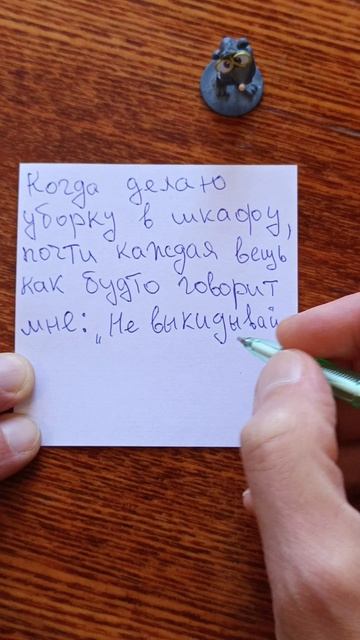 Когда делаю
уборку в шкафу,
почти каждая вещь
как будто говорит
мне: „Не выкидывай